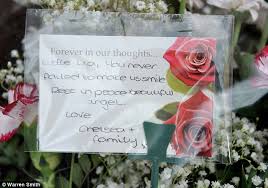 Forever in our thoughts...
little Lexi, You never
failed to make us smile
Rest in peace beautiful
angel.
Love
Chelsea +
family
© Warren Smith